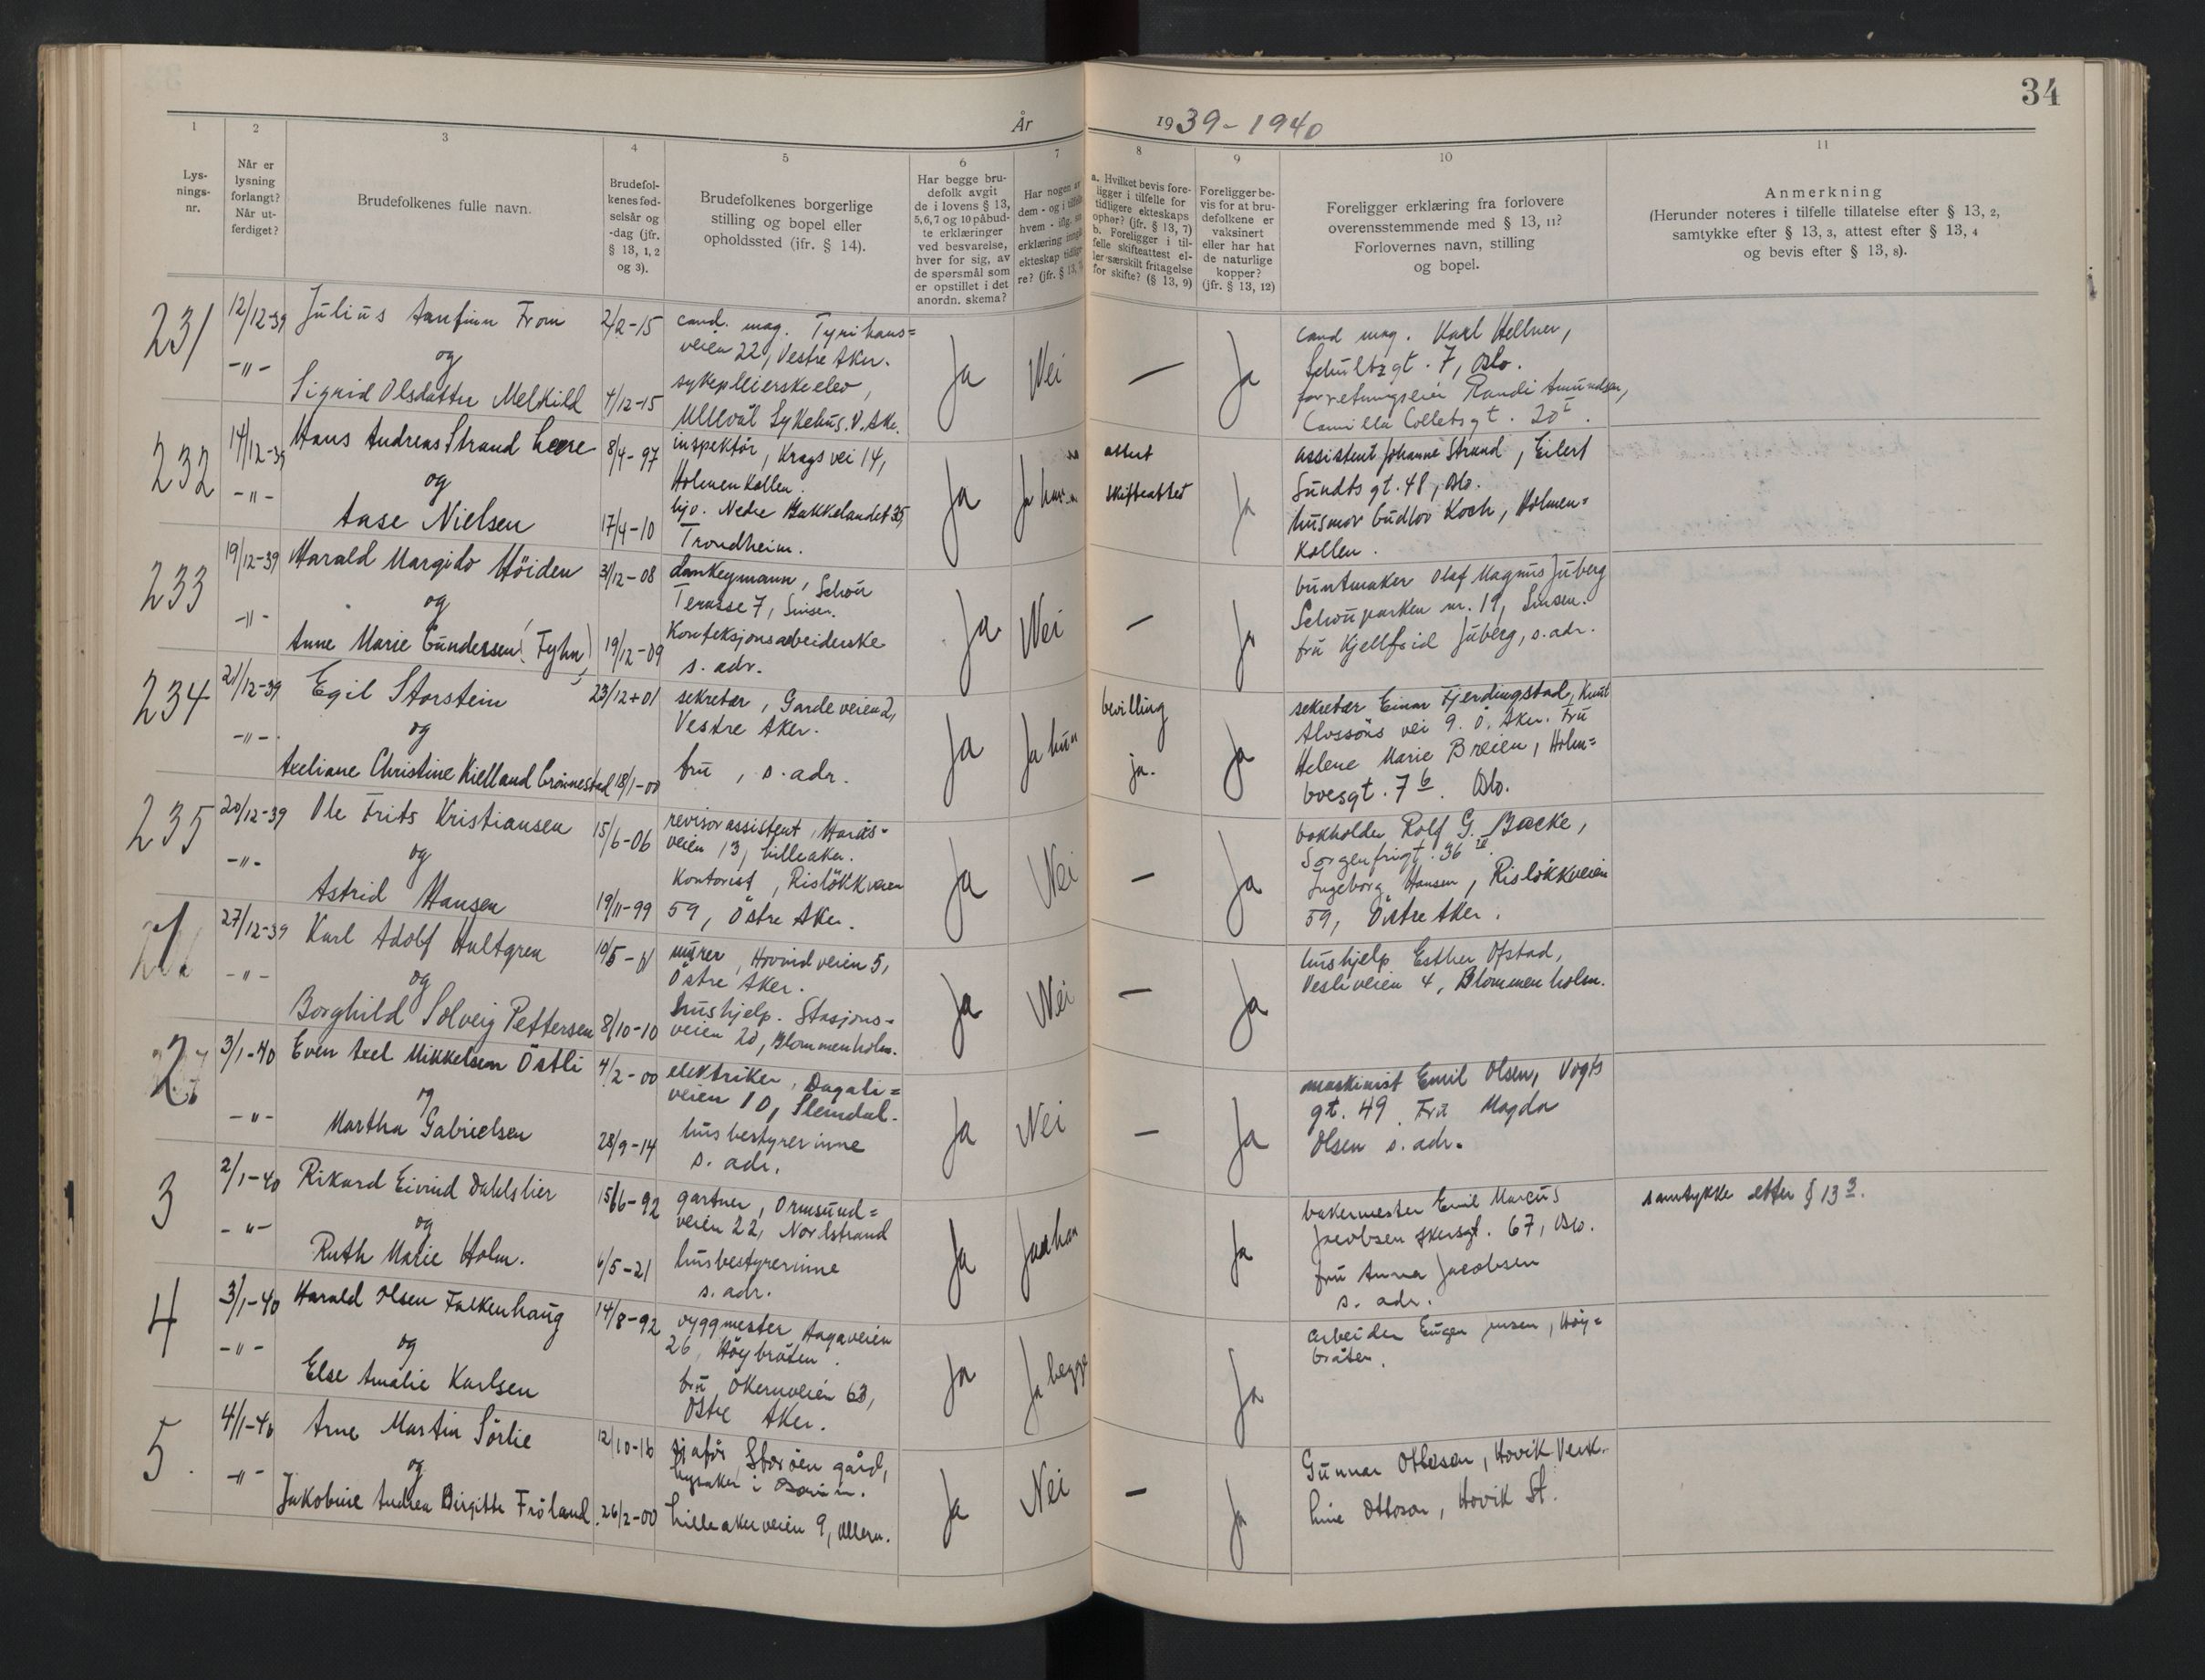 34
År 1939-1940
1
2
3
4
5
6
7
8
9
10
11
Lys-
nings-
nr.
Når er
lysning
forlangt?
Når ut-
ferdiget?
Brudefolkenes fulle navn.
Brudefol-
kenes fød-
selsår og
-dag (jfr.
§ 13, 1, 2
og 3).
Brudefolkenes borgerlige
stilling og bopel eller
opholdssted (jfr. § 14).
Har begge bru-
defolk avgit
de i lovens § 13,
5, 6, 7 og 10 påbud-
te erklæringer
ved besvarelse,
hver for sig, av
de spørsmål som
er opstillet i det
anordn. skema?
Har nogen av
dem - og i tilfelle
hvem - iflg. sin
erklæring inngått
ekteskap tidlige-
re? (jfr. § 13,
a. Hvilket bevis fore-
ligger i tilfelle for
tidligere ekteskaps
ophør? (jfr. § 13, 7)
b. Foreligger i til-
felle skifteattest el-
ler særskilt fritagelse
for skifte? (§ 13, 9)
Foreligger be-
vis for at bru-
defolkene er
vaksinert
eller har hat
de naturlige
kopper?
(jfr. § 13, 12)
Foreligger erklæring fra forlovere
overensstemmende med § 13, 11?
Forlovernes navn, stilling
og bopel.
Anmerkning
(Herunder noteres i tilfelle tillatelse efter § 13, 2,
samtykke efter § 13, 3, attest efter § 13, 4
og bevis efter § 13, 8).
231
12/12-39
-"-
Julius Arnfinn From
og
Sigrid Olsdatter Melkild
2/2-15
4/12-15
cand. mag. Tyrihans=
veien 22, Vestre Aker.
sykepleierskeelev,
Ullevål Sykehus. V. Ake.
Ja
Nei
—
Ja
cand mag. Karl Hellner,
Schultzgt. 7, Oslo.
forretningseier Randi Amundsen,
Camilla Colletsgt. 20
232
14/12-39
-"-
Hans Andreas Strand Leere
og
Aase Nielsen
8/4-97
17/4-10
inspektör, Krags vei 14,
Holmenkollen.
hjo. Nedre Bakkelandet 35,
Trondheim.
Ja
Ja han
attest
skifteattest
Ja
assistent Johanne Strand, Eilert
Sundts gt. 48, Oslo.
husmor Gudlov Koch, Holmen=
kollen.
233
19/12-39
-"-
Harald Margido Höiden
og
Anne Marie Gundersen (Fyhn)
31/12-08
19/12-09
donkeymann, Schou
Terasse 7, Sinsen.
Konfeksjonsarbeiderske
s. adr.
Ja
Nei
—
Ja
buntmaker Olaf Magnus Juberg
Schouparken nr. 19, Sinsen.
fru Kjellfrid Juberg, s. adr.
234
21/12-39
-"-
Egil Storstein
og
Axeliane Christine Kielland Grönnestad
23/12-01
18/1-00
sekretær, Garde veien 2,
Vestre Aker.
fru, s. adr.
Ja
Ja hun
bevilling
ja.
Ja
sekretær Einar Fjerdingstad, Knut
Alvssöns vei 9. Ö. Aker. Fru
Helene Marie Breien, Holm=
boesgt. 7 b. Oslo.
235
20/12-39
-"-
Ole Frits Kristiansen
og
Astrid Hansen
15/6-06
19/11-99
revisorassistent, Harås-
veien 13, Lilleaker.
Kontorist, Rislökkveien
59, Östre Aker.
Ja
Nei
—
Ja
bokholder Rolf G. Backe,
Sorgenfrigt. 36
Ingeborg Hansen, Rislökkveien
59, Östre Aker.
1
27/12-39
-"-
Karl Adolf Hultgren
og
Borghild Solveig Pettersen
8/10-10
murer, Hovind veien 5,
Östre Aker.
hushjelp. Stasjons-
veien 20, Blommenholm.
Ja
Nei
—
Ja
hushjelp Esther Ofstad,
Vesleveien 4, Blommenholm.
2.
3/1-40
-"-
Even Axel Mikkelsen Östli
og
Martha Gabrielsen
4/2-00
28/9-14
elektriker, Dagali=
veien 10, Slemdal.
husbestyrerinne
s. adr.
Ja
Nei
—
Ja
maskinist Emil Olsen, Vogts
gt. 49. Fru Magda
Olsen s. adr.
3
2/1-40
-"-
Rikard Eivind Dahlslier
og
Ruth Marie Holm.
15/6-92
6/5-21
gartner, Ormsund=
veien 22, Nordstrand
husbestyrerinne
s. adr.
Ja
Ja han
Ja
bakermester Emil Marcus
Jacobsen Akersgt. 67, Oslo.
fru Anna Jacobsen
s. adr.
samtykke efter § 13 3.
4
3/1-40
-"-
Harald Olsen Falkenhaug
og
Else Amalie Karlsen
14/8-92
byggmester Aagaveien
26, Höybråten.
fru, Ökernveien 63,
Östre Aker.
Ja
Ja begge
Ja
arbeider Eugen Jensen, Höy=
bråten.
5.
4/1-40
-"-
Arne Martin Sörlie
og
Jakobine Andrea Birgitte Fröland.
12/10-16
26/2-00
sjaför, Storöen gård,
Lysaker i Bærum.
Lilleakerveien 9, Ullern.
Ja
Nei
—
Ja
Gunnar Ottosen, Hovik Verk.
Line Ottosen, Hovik St.